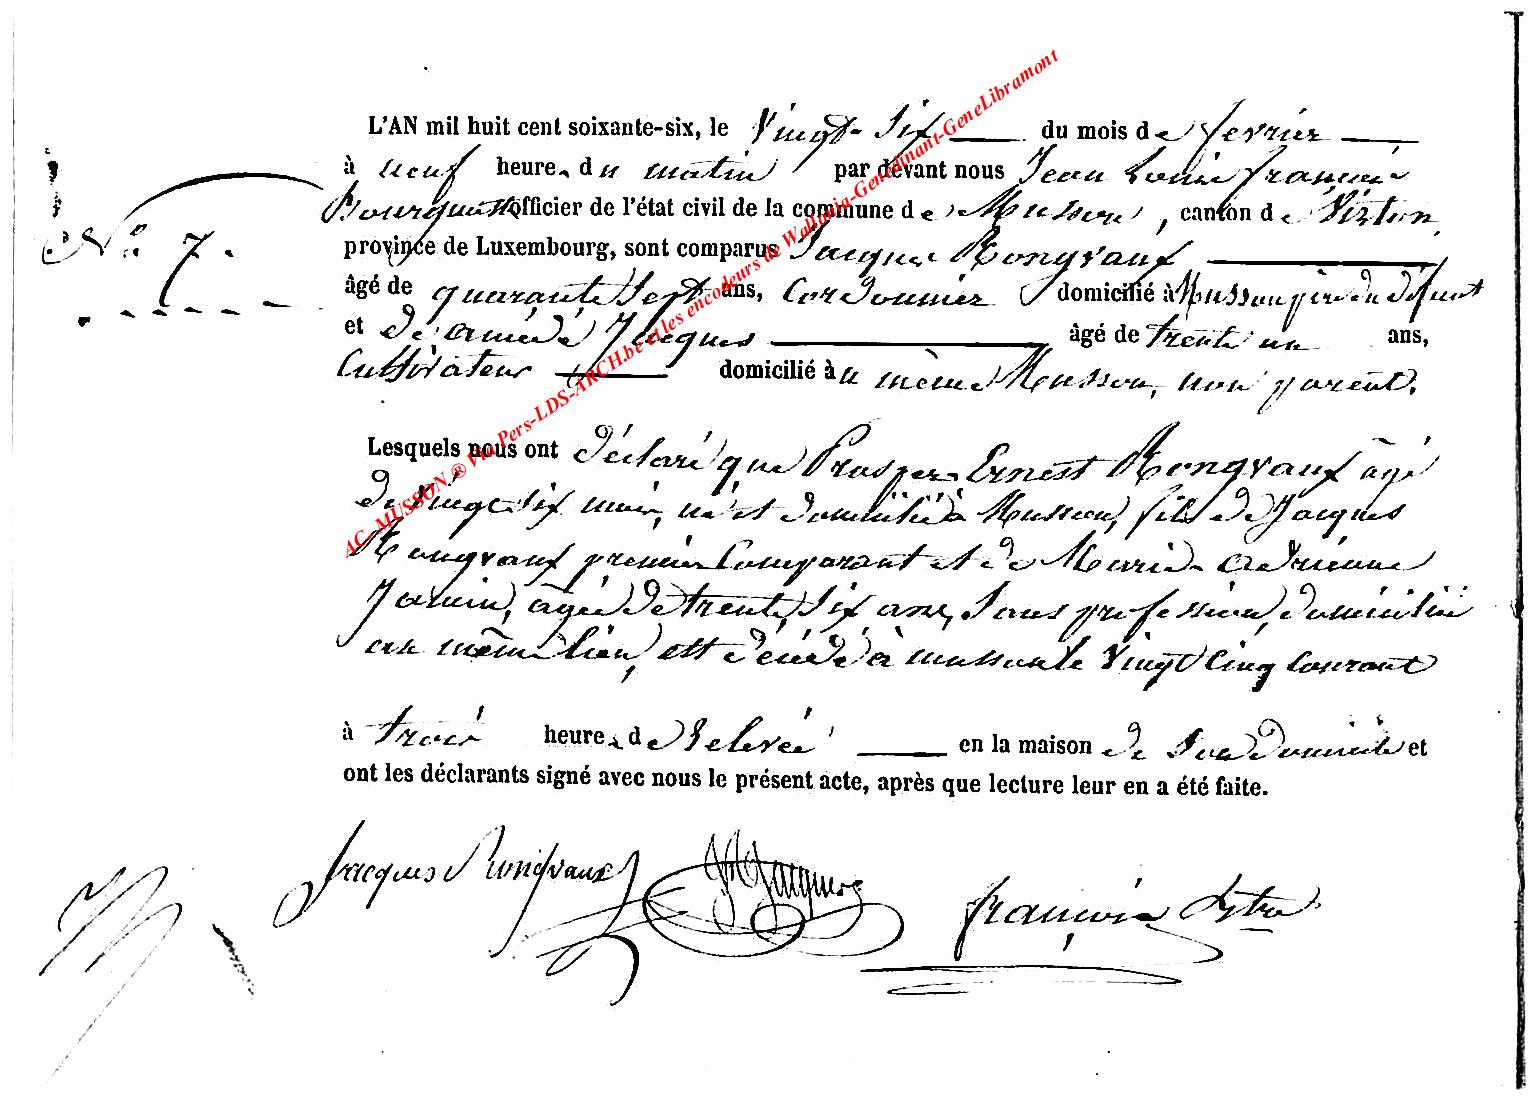 L'AN mil huit cent soixante-six, le Vingt-Six du mois de fevrier
à neuf heure. du matin par devant nous Jean Louis François
officier de l'état civil de la commune de Musson, canton de Virton,
N° 7.
province de Luxembourg, sont comparus Jacques Rongvaux
âgé de quarante Sept ans, Cordonnier domicilié à Musson père du défunt
et de Jacques âgé de trente un ans,
Cultivateur domicilié à u même Musson, non parent.
Lesquels nous ont déclaré que Prosper Ernest Rongvaux âgé
de vingt six mois, né et domicilié à Musson, fils de Jacques
Rongvaux premier Comparant et de Marie Adrienne
Jamin, âgée de trente six ans, Sans profession, domiciliée
au même lieu, est décédé à musson le Vingt Cinq Courant
à trois heure. de relevée en la maison de Son domicile et
ont les déclarants signé avec nous le présent acte, après que lecture leur en a été faite.
Jacques Rongvaux Jacques François
AC-MUSSON ® Via Pers-LDS-ARCH.be et les encodeurs de Wallonia-GeneDinant-GeneLibramont